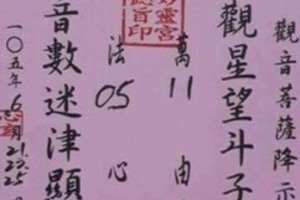 觀音菩薩降示
觀星望斗子
萬 11 由
靈宮
旨印
法 05 心
音數迷津顯
一○五年6
21.23.25